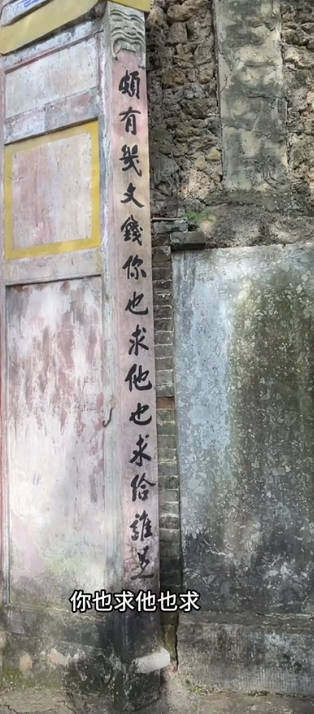 頗有幾文錢你也求他也求給誰是
你也求他也求